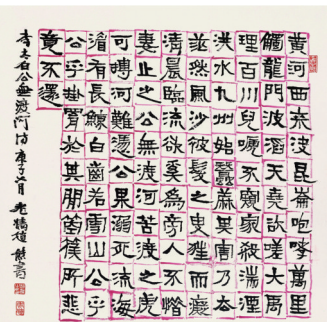 黃河西來決崑崙咆哮萬里
觸龍門波滔天堯咨嗟大禹
理百川兒啼不窺家殺湍湮
洪水九州始蠶麻其害乃去
茫然風沙被髮之叟狂而癡
清晨臨流欲奚為旁人不惜
妻止之公無渡河苦渡之虎
可搏河難憑公果溺死流海
湄有長鯨白齒若雪山公乎
公乎掛罥於其間箜篌所悲
竟不還
李太白公無渡河詩庚子